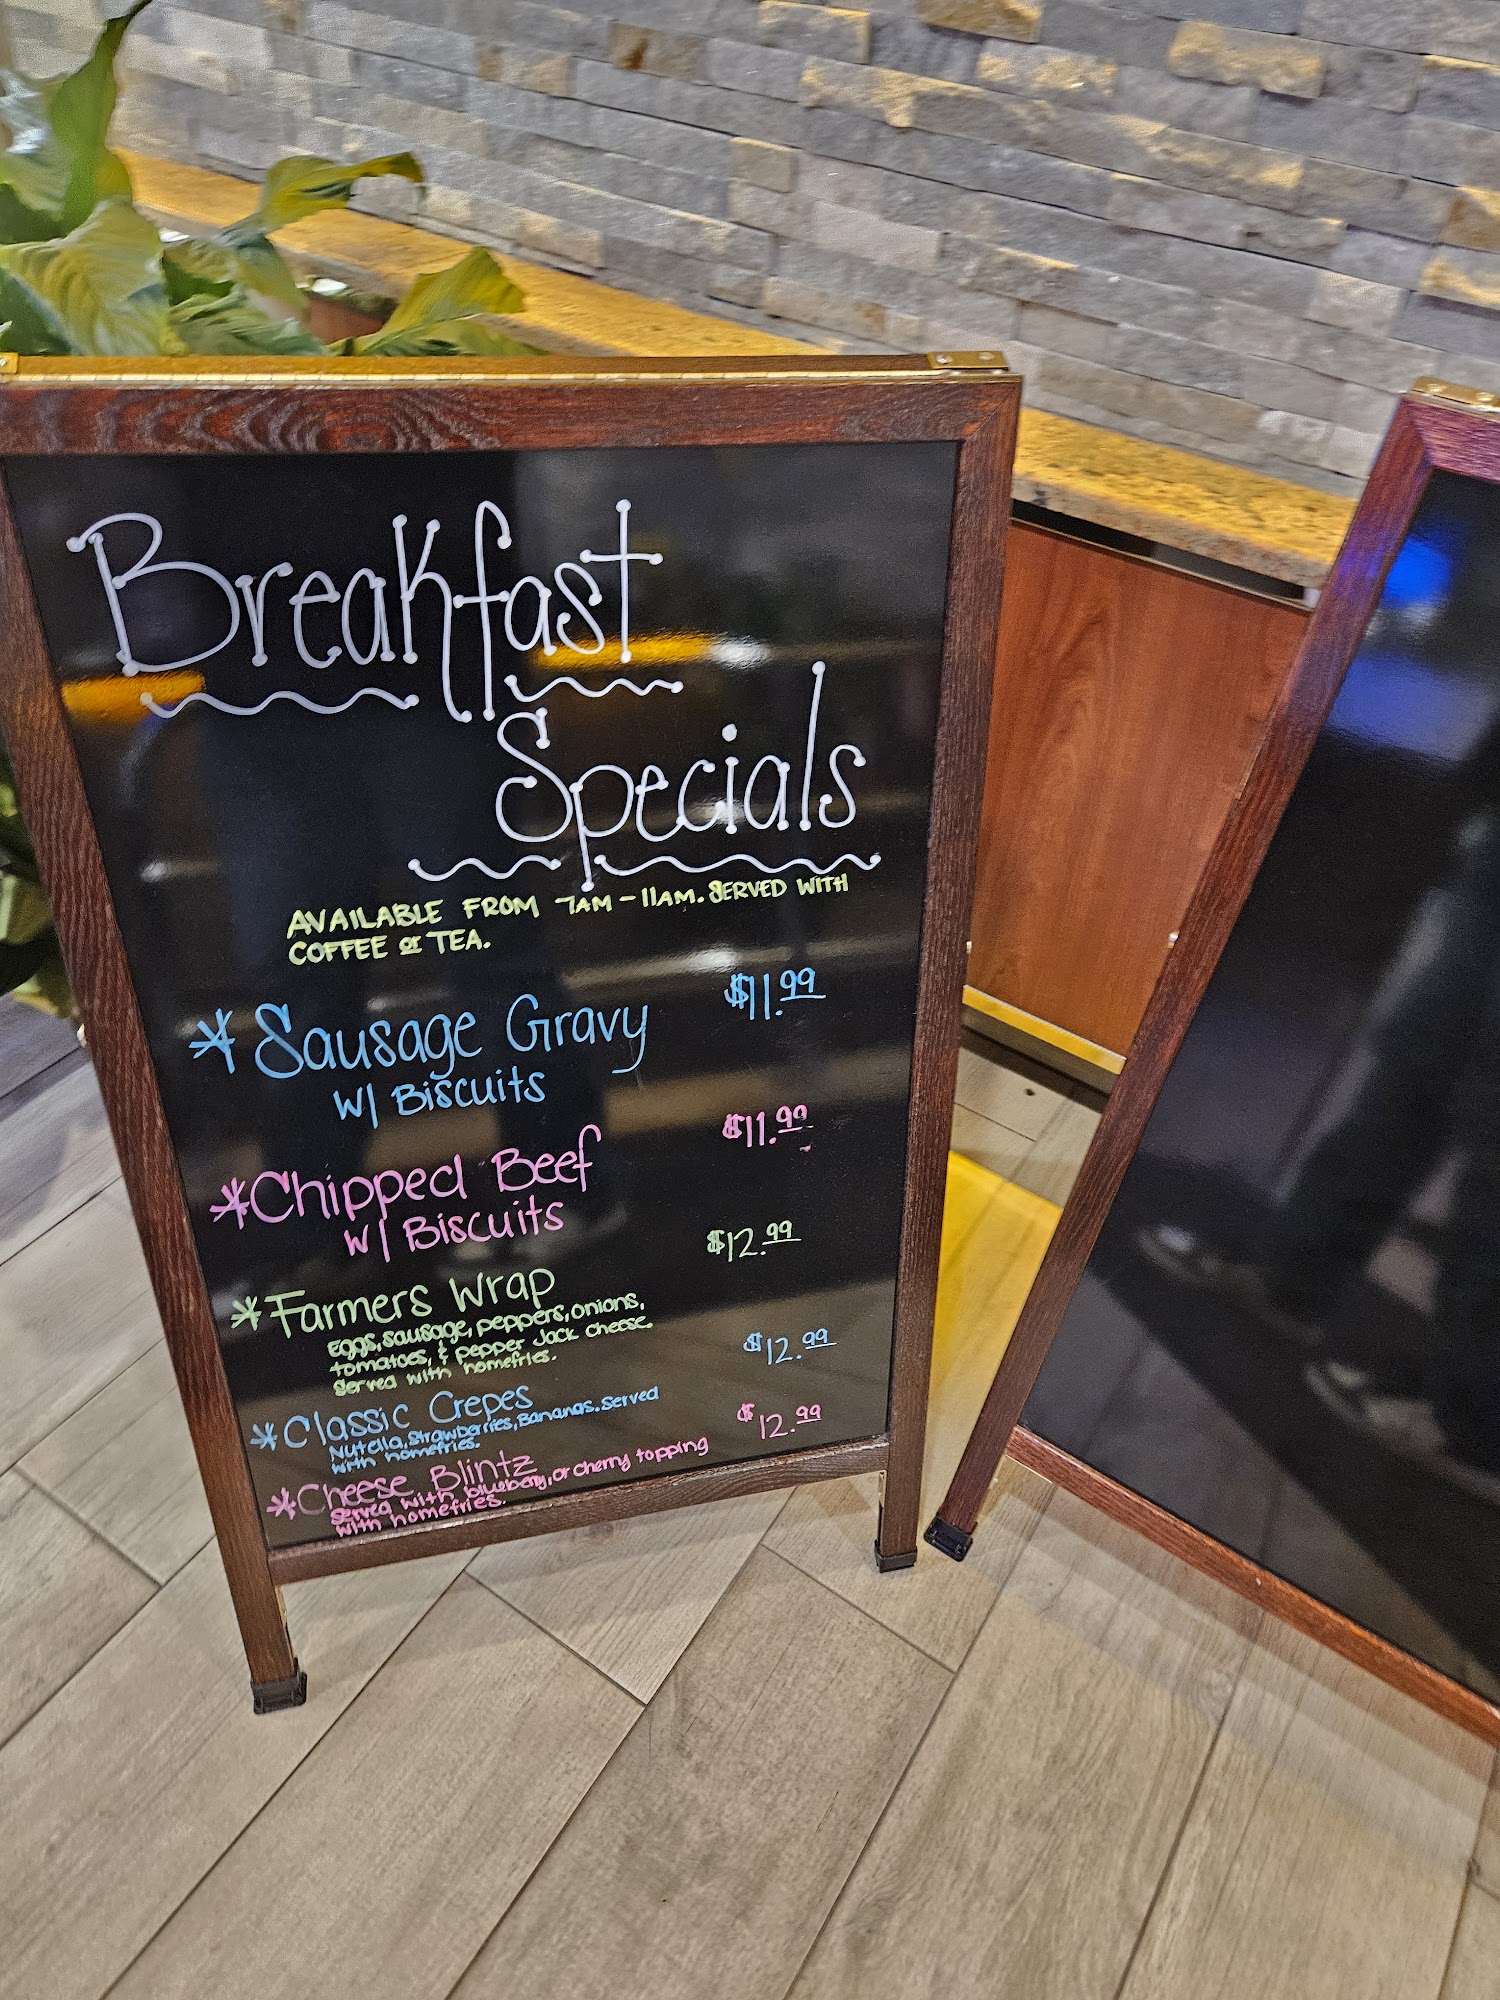 Breakfast
Specials
AVAILABLE FROM 7AM-11AM. SERVED WITH
COFFEE or TEA.
*Sausage Gravy $11.99
W/ Biscuits
*Chipped Beef $11.99
W/ Biscuits
*Farmers Wrap $12.99
Eggs, sausage, peppers, onions,
tomatoes, & pepper Jack cheese.
Served with homefries.
*Classic Crepes $12.99
Nutella, Strawberries, Bananas. Served
with homefries.
*Cheese Blintz $12.99
Served with blueberry, or cherry topping
with homefries.